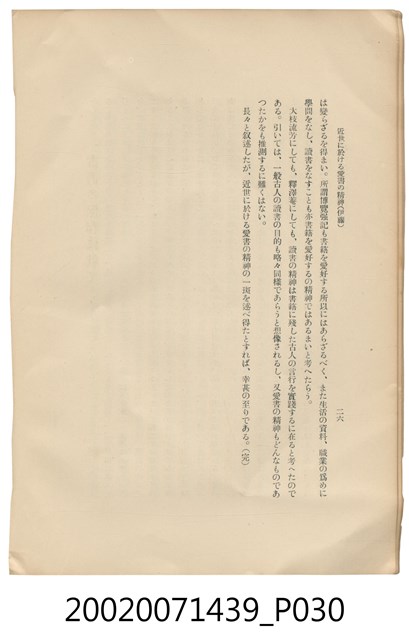 近世に於ける愛書の精神(伊藤)
二六
は變らざるを得まい。所謂博覽强記も書籍を愛好する所以にはあらざるべく、また生活の資料、職業の爲めに
學問をなし、讀書をなすことも亦書籍を愛好するの精神ではあるまいと考へたらう。
大枝流芳にしても、釋澤菴にしても、讀書の精神は書籍に殘した古人の言行を實踐するに在ると考へたので
ある。引いては、一般古人の讀書の目的も略々同樣であらうと想像されるし、又愛書の精神もどんなものであ
つたかをも推測するに難くはない。
長々と叙述したが、近世に於ける愛書の精神の一斑を述べ得たとすれば、幸甚の至りである。(完)
20020071439_P030